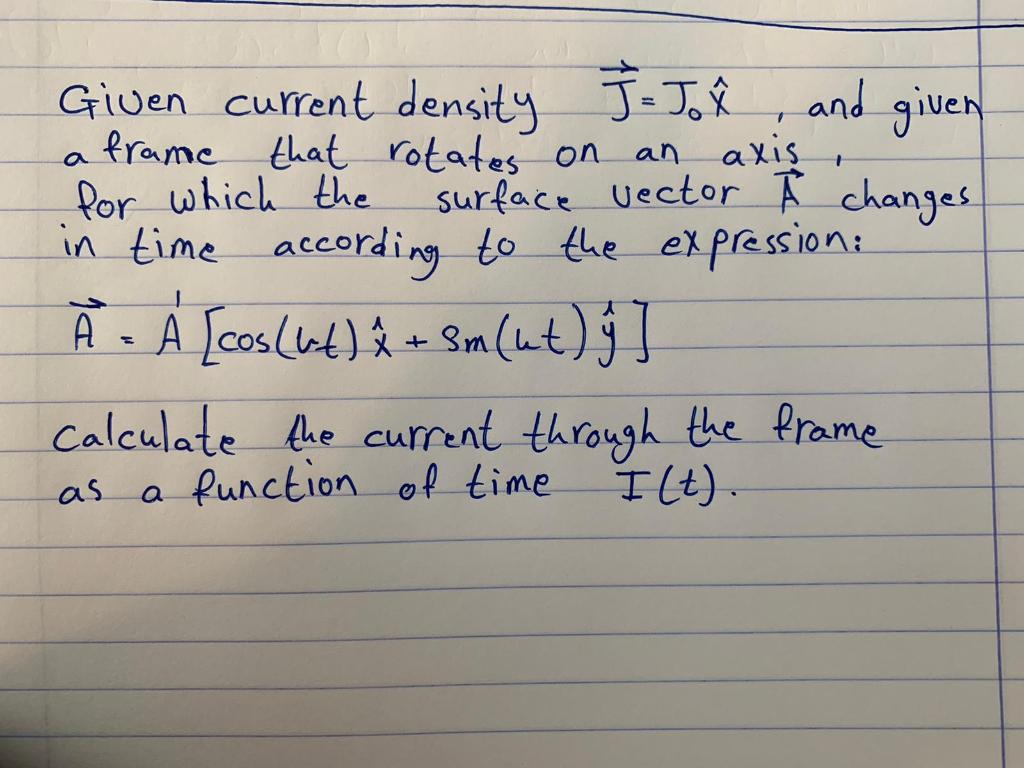 Given current density J⃗ = J₀ x̂ , and given
a frame that rotates on an axis ,
for which the surface vector A⃗ changes
in time according to the expression:
A⃗ = A' [cos(ωt) x̂ + sin(ωt) ŷ ]
Calculate the current through the frame
as a function of time I(t).